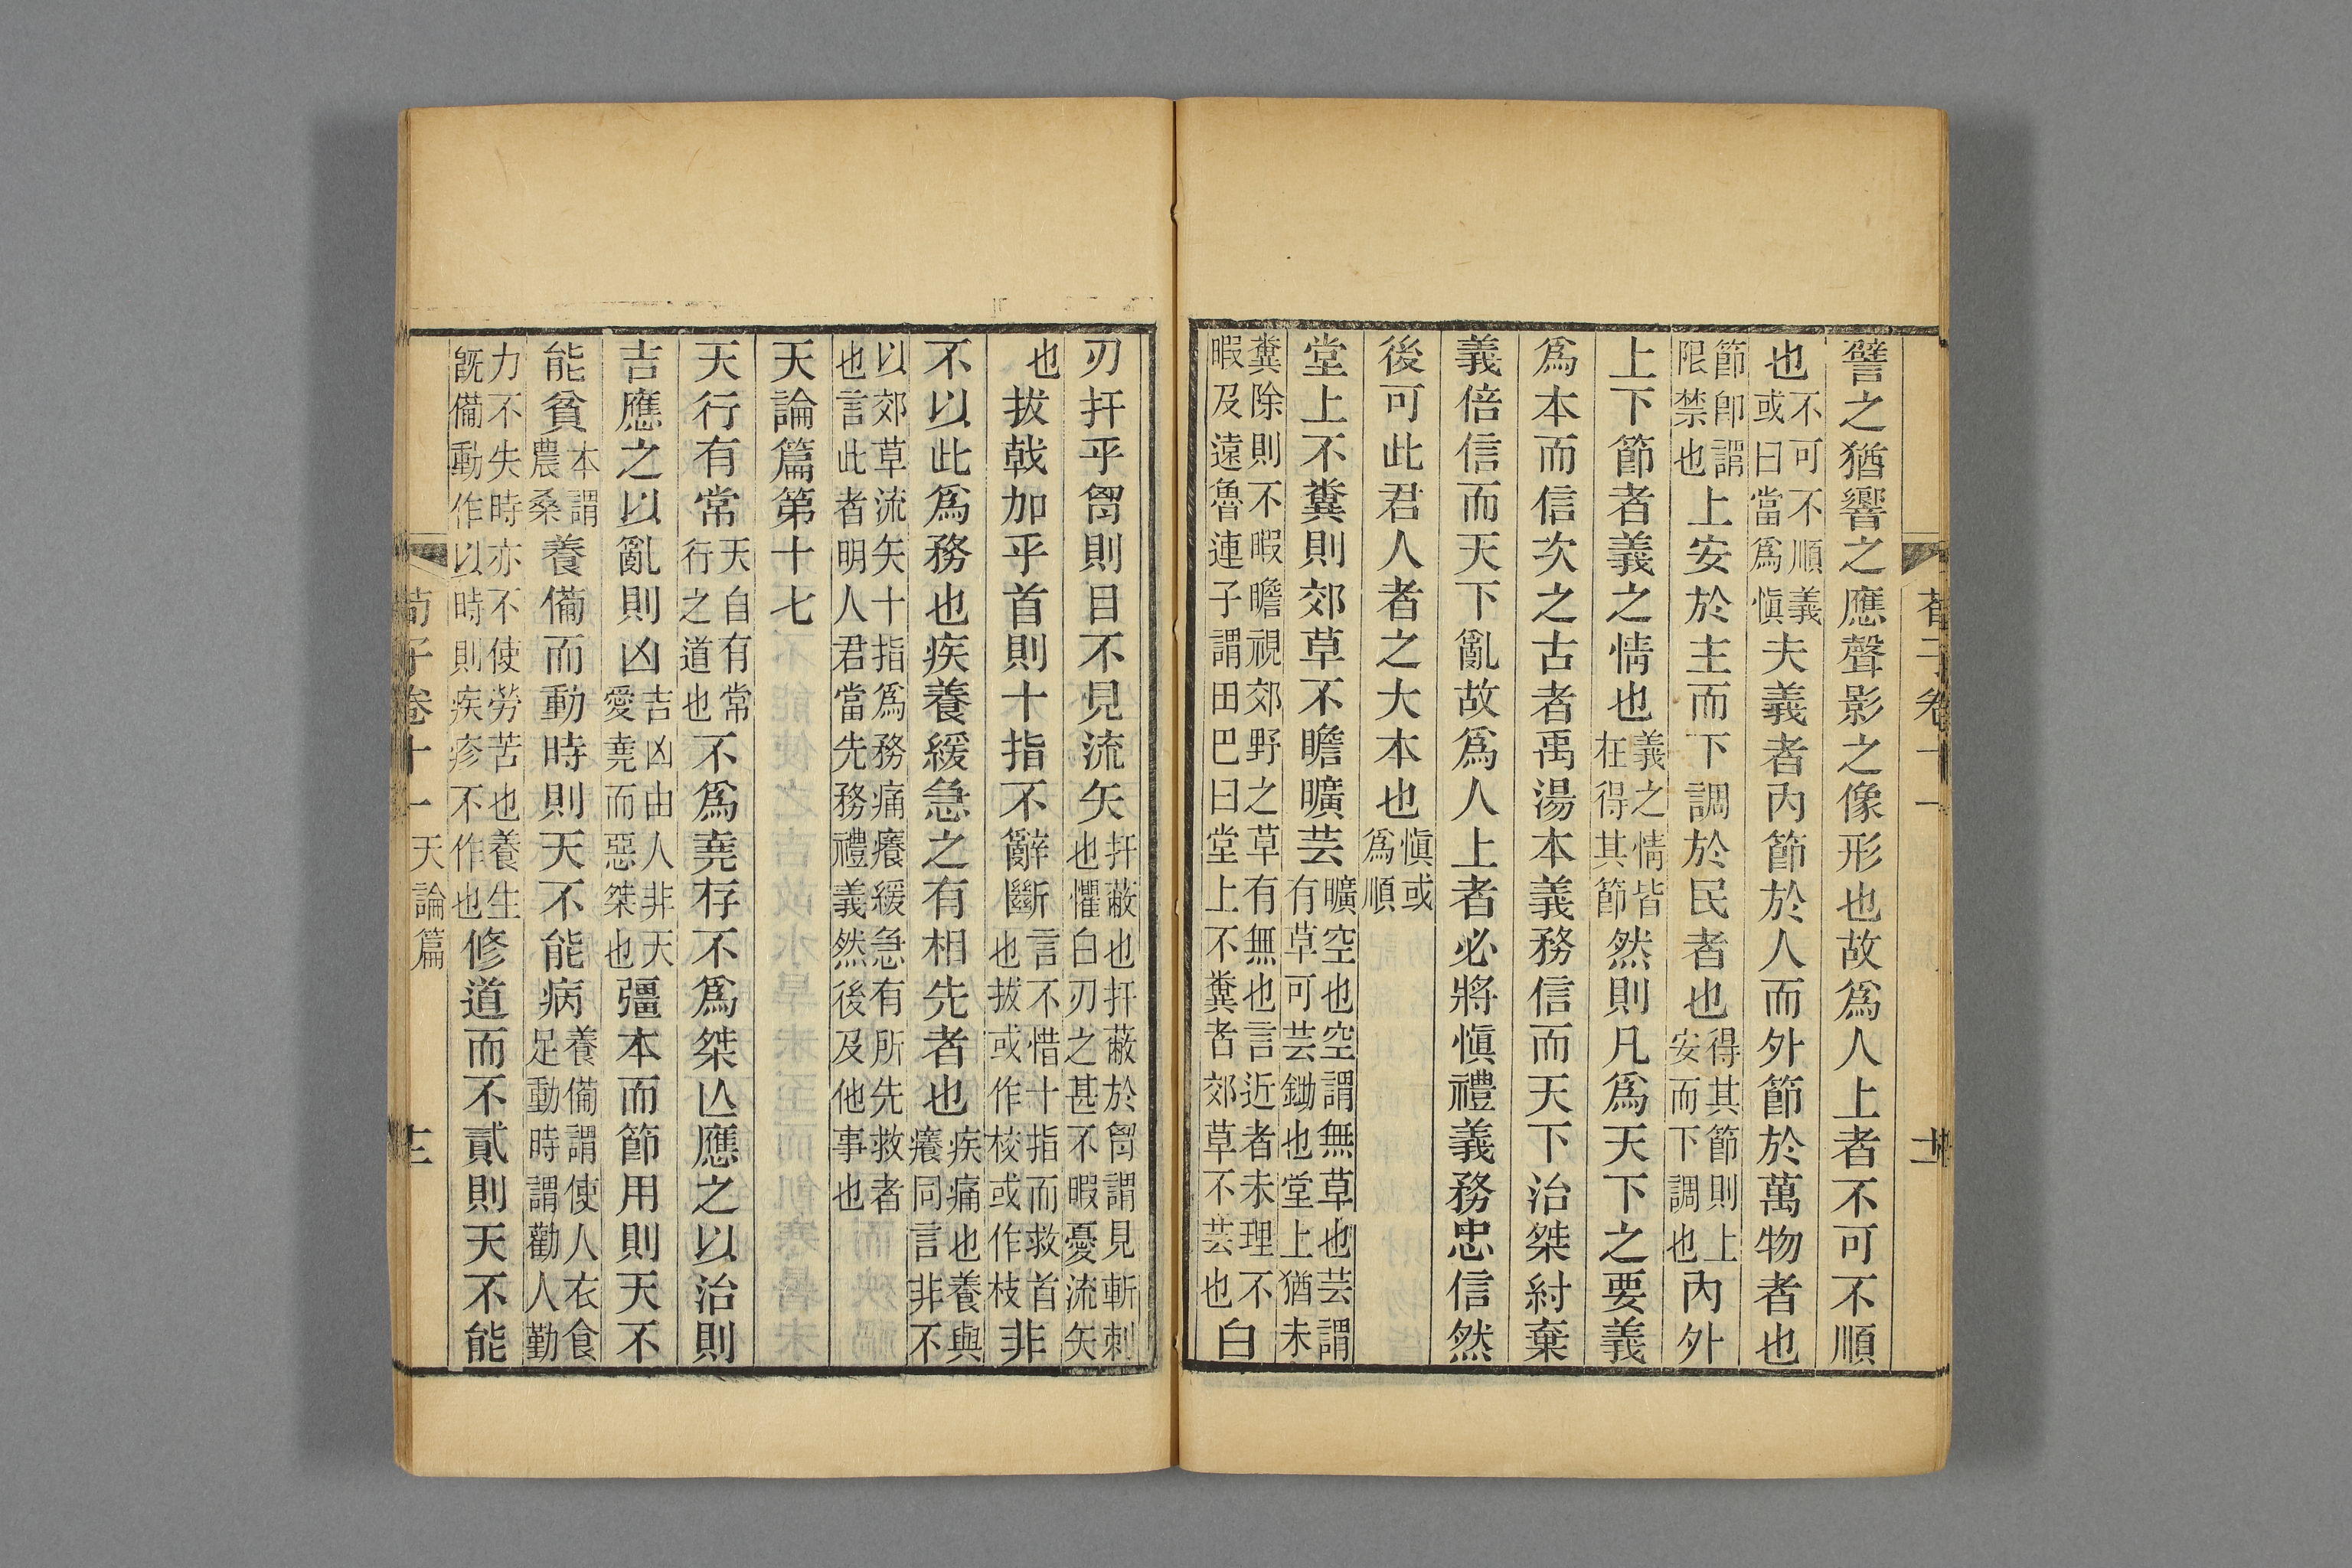 譬之猶響之應聲影之像形也故爲人上者不可不順
也不可不順義或曰當爲愼夫義者內節於人而外節於萬物者也
節卽謂限禁也上安於主而下調於民者也得其節則上安而下調也內外
上下節者義之情也義之情皆在得其節然則凡爲天下之要義
爲本而信次之古者禹湯本義務信而天下治桀紂棄
義倍信而天下亂故爲人上者必將愼禮義務忠信然
後可此君人者之大本也愼或爲順
堂上不糞則郊草不瞻曠芸曠空也空謂無草也芸謂有草可芸鋤也堂上猶未
糞除則不暇瞻視郊野之草有無也言近者未理不暇及遠魯連子謂田巴曰堂上不糞者郊草不芸也白
刃扞乎胷則目不見流矢扞蔽也扞蔽於胷謂見斬刺也懼白刃之甚不暇憂流矢
也拔戟加乎首則十指不辭斷言不惜十指而救首也拔或作校或作枝非
不以此爲務也疾養緩急之有相先者也疾痛也養與癢同言非不
以郊草流矢十指爲務痛癢緩急有所先救者也言此者明人君當先務禮義然後及他事也
天論篇第十七
天行有常天自有常行之道也不爲堯存不爲桀亾應之以治則
吉應之以亂則凶吉凶由人非天愛堯而惡桀也彊本而節用則天不
能貧本謂農桑養備而動時則天不能病養備謂使人衣食足動時謂勸人勤
力不失時亦不使勞苦也養生旣備動作以時則疾疹不作也修道而不貳則天不能
荀子卷十一 天論篇